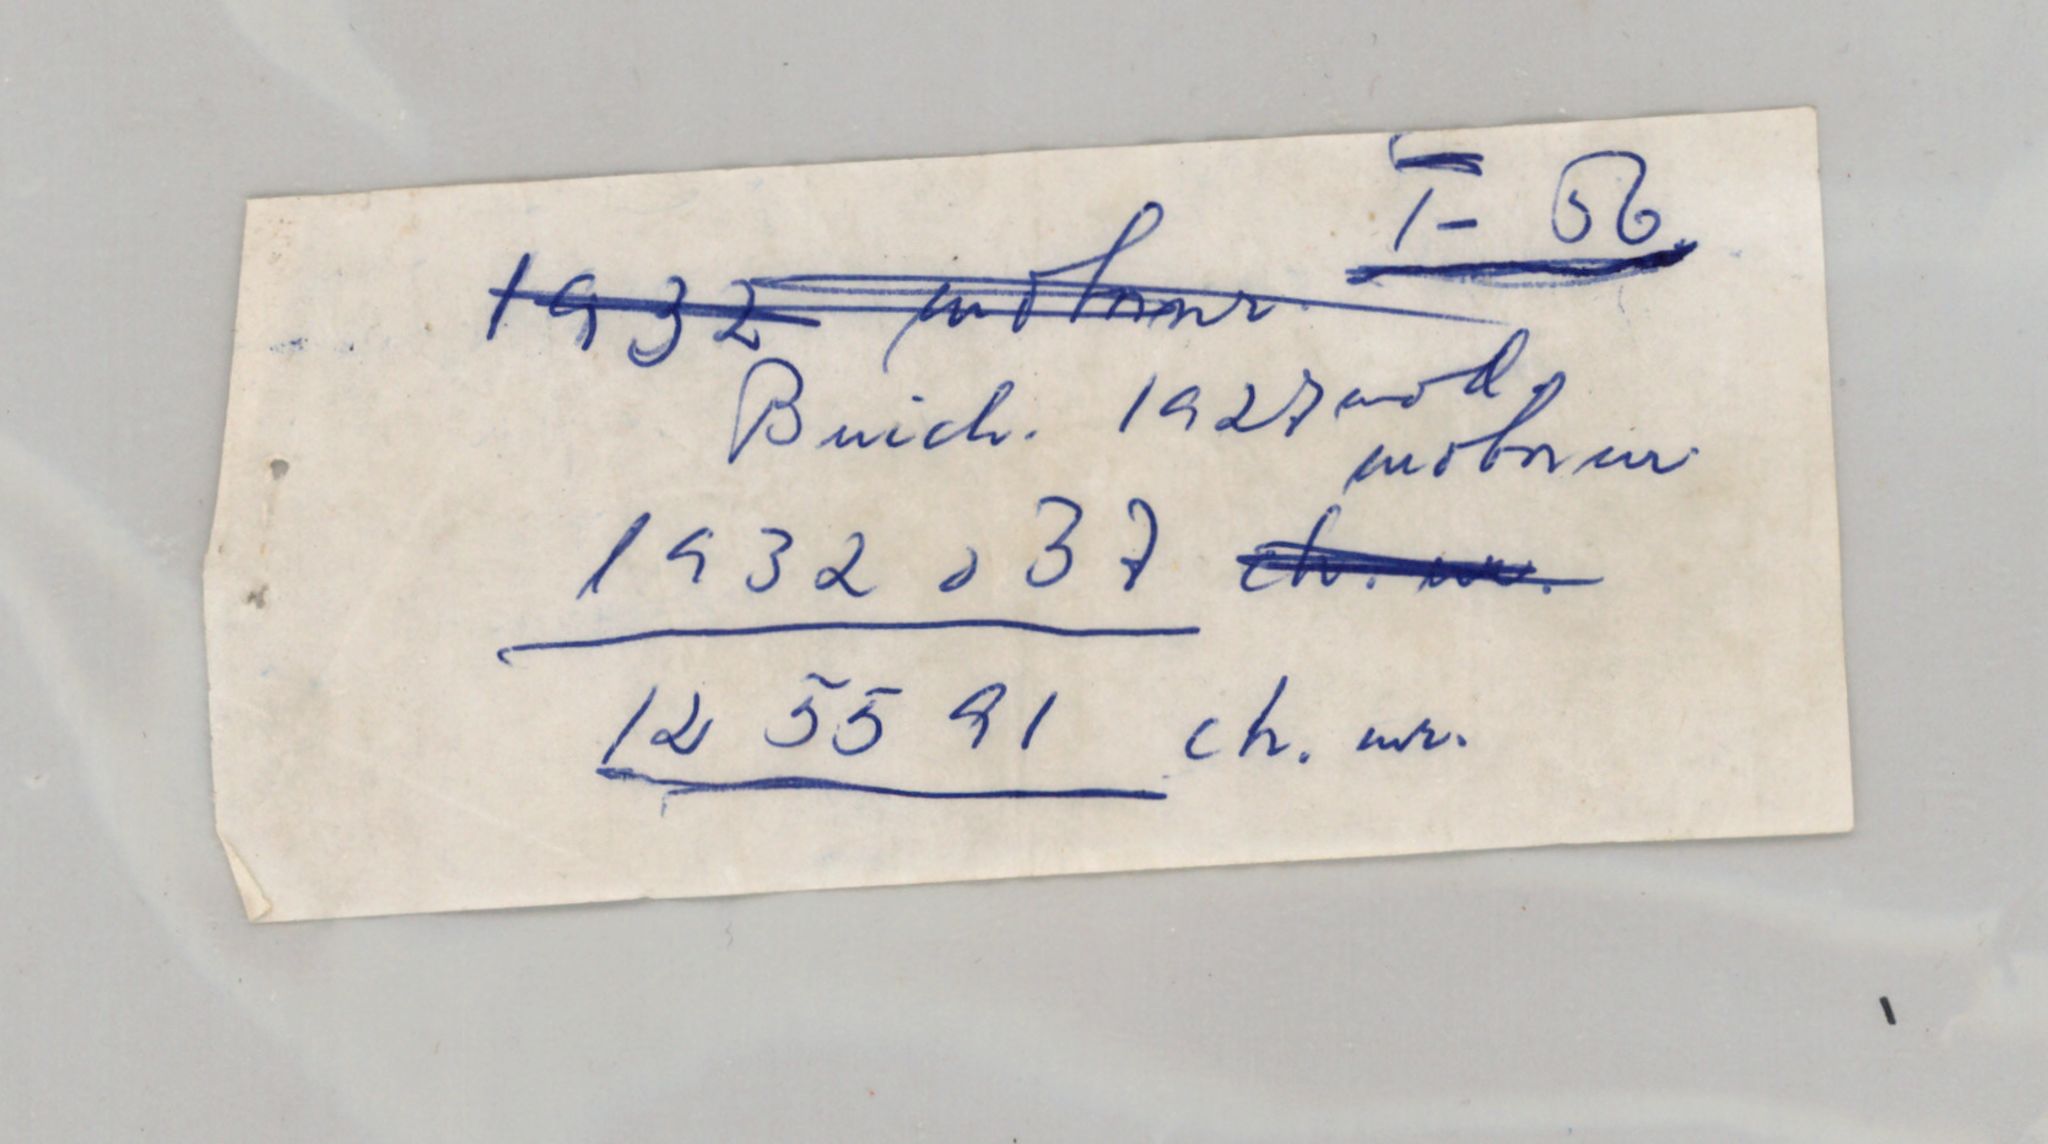 I - 56
1932 motornr.
Buick. 1927 mod.
motornr
1932037 ch. nr.
1255591 ch. nr.